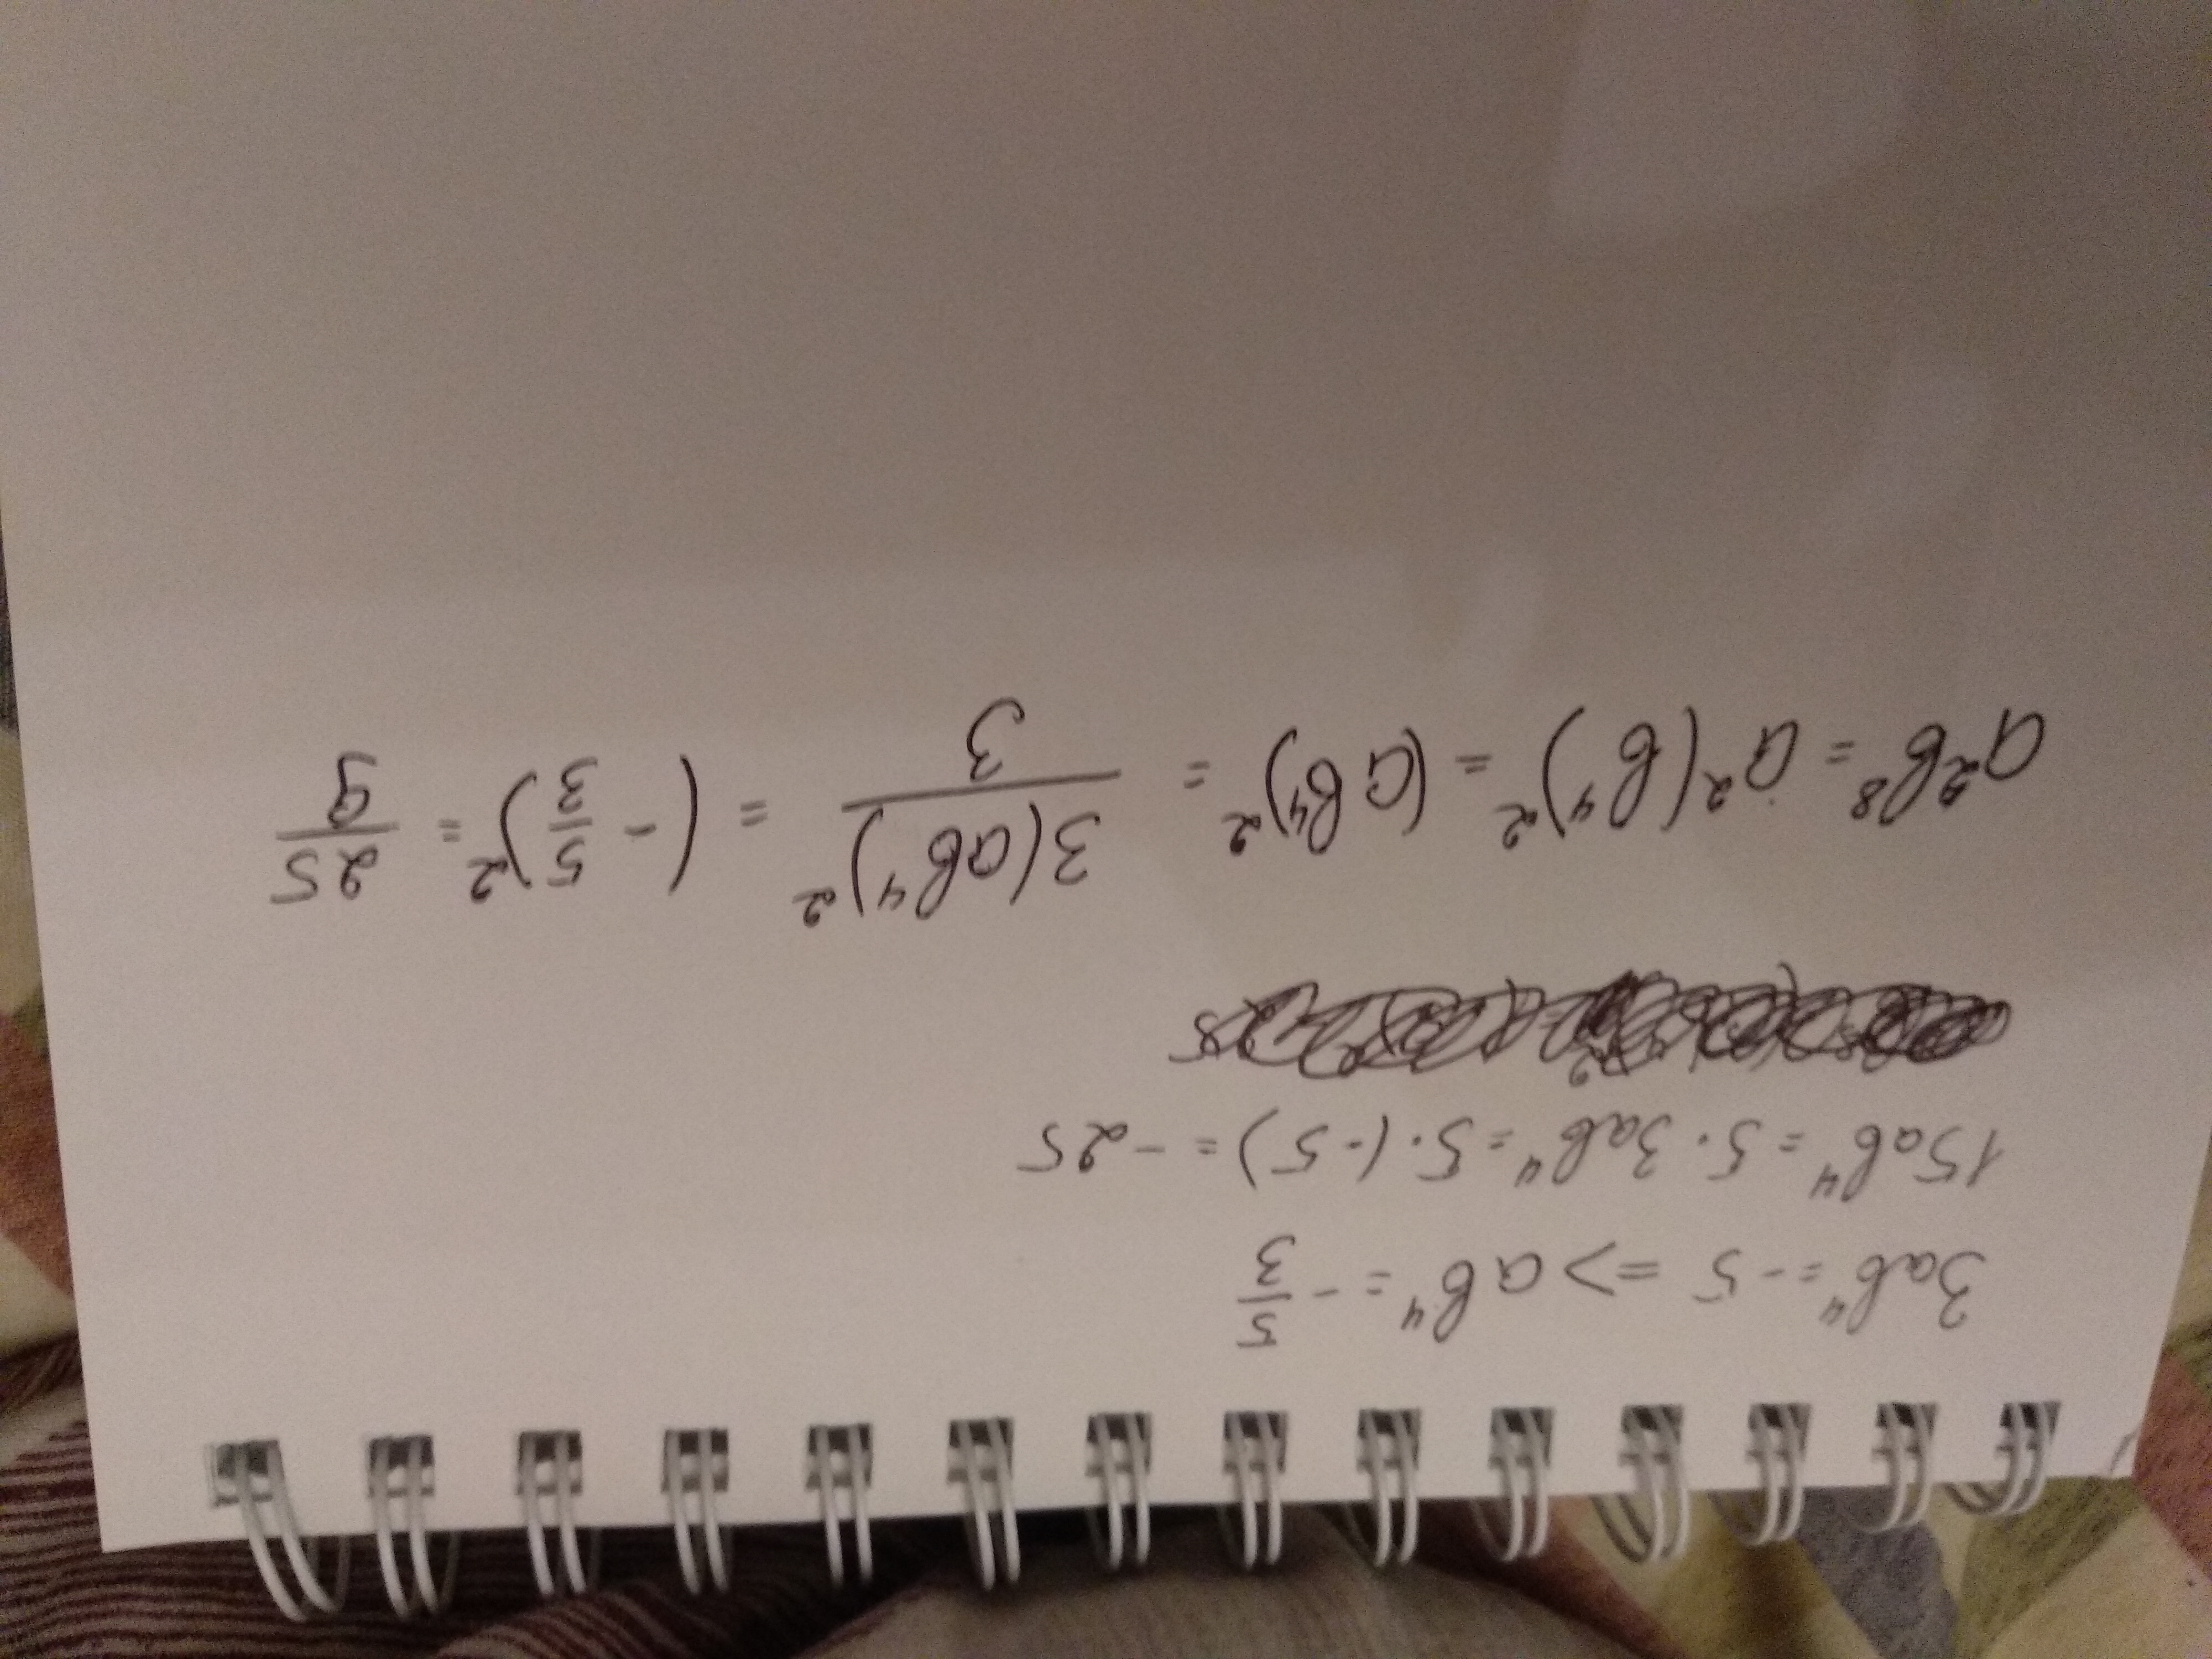 3ab⁴ = -5 => ab⁴ = -5/3
15ab⁴ = 5 · 3ab⁴ = 5 · (-5) = -25
a²b⁸ = a²(b⁴)² = (ab⁴)² = 3(ab⁴)²/3 = (-5/3)² = 25/9